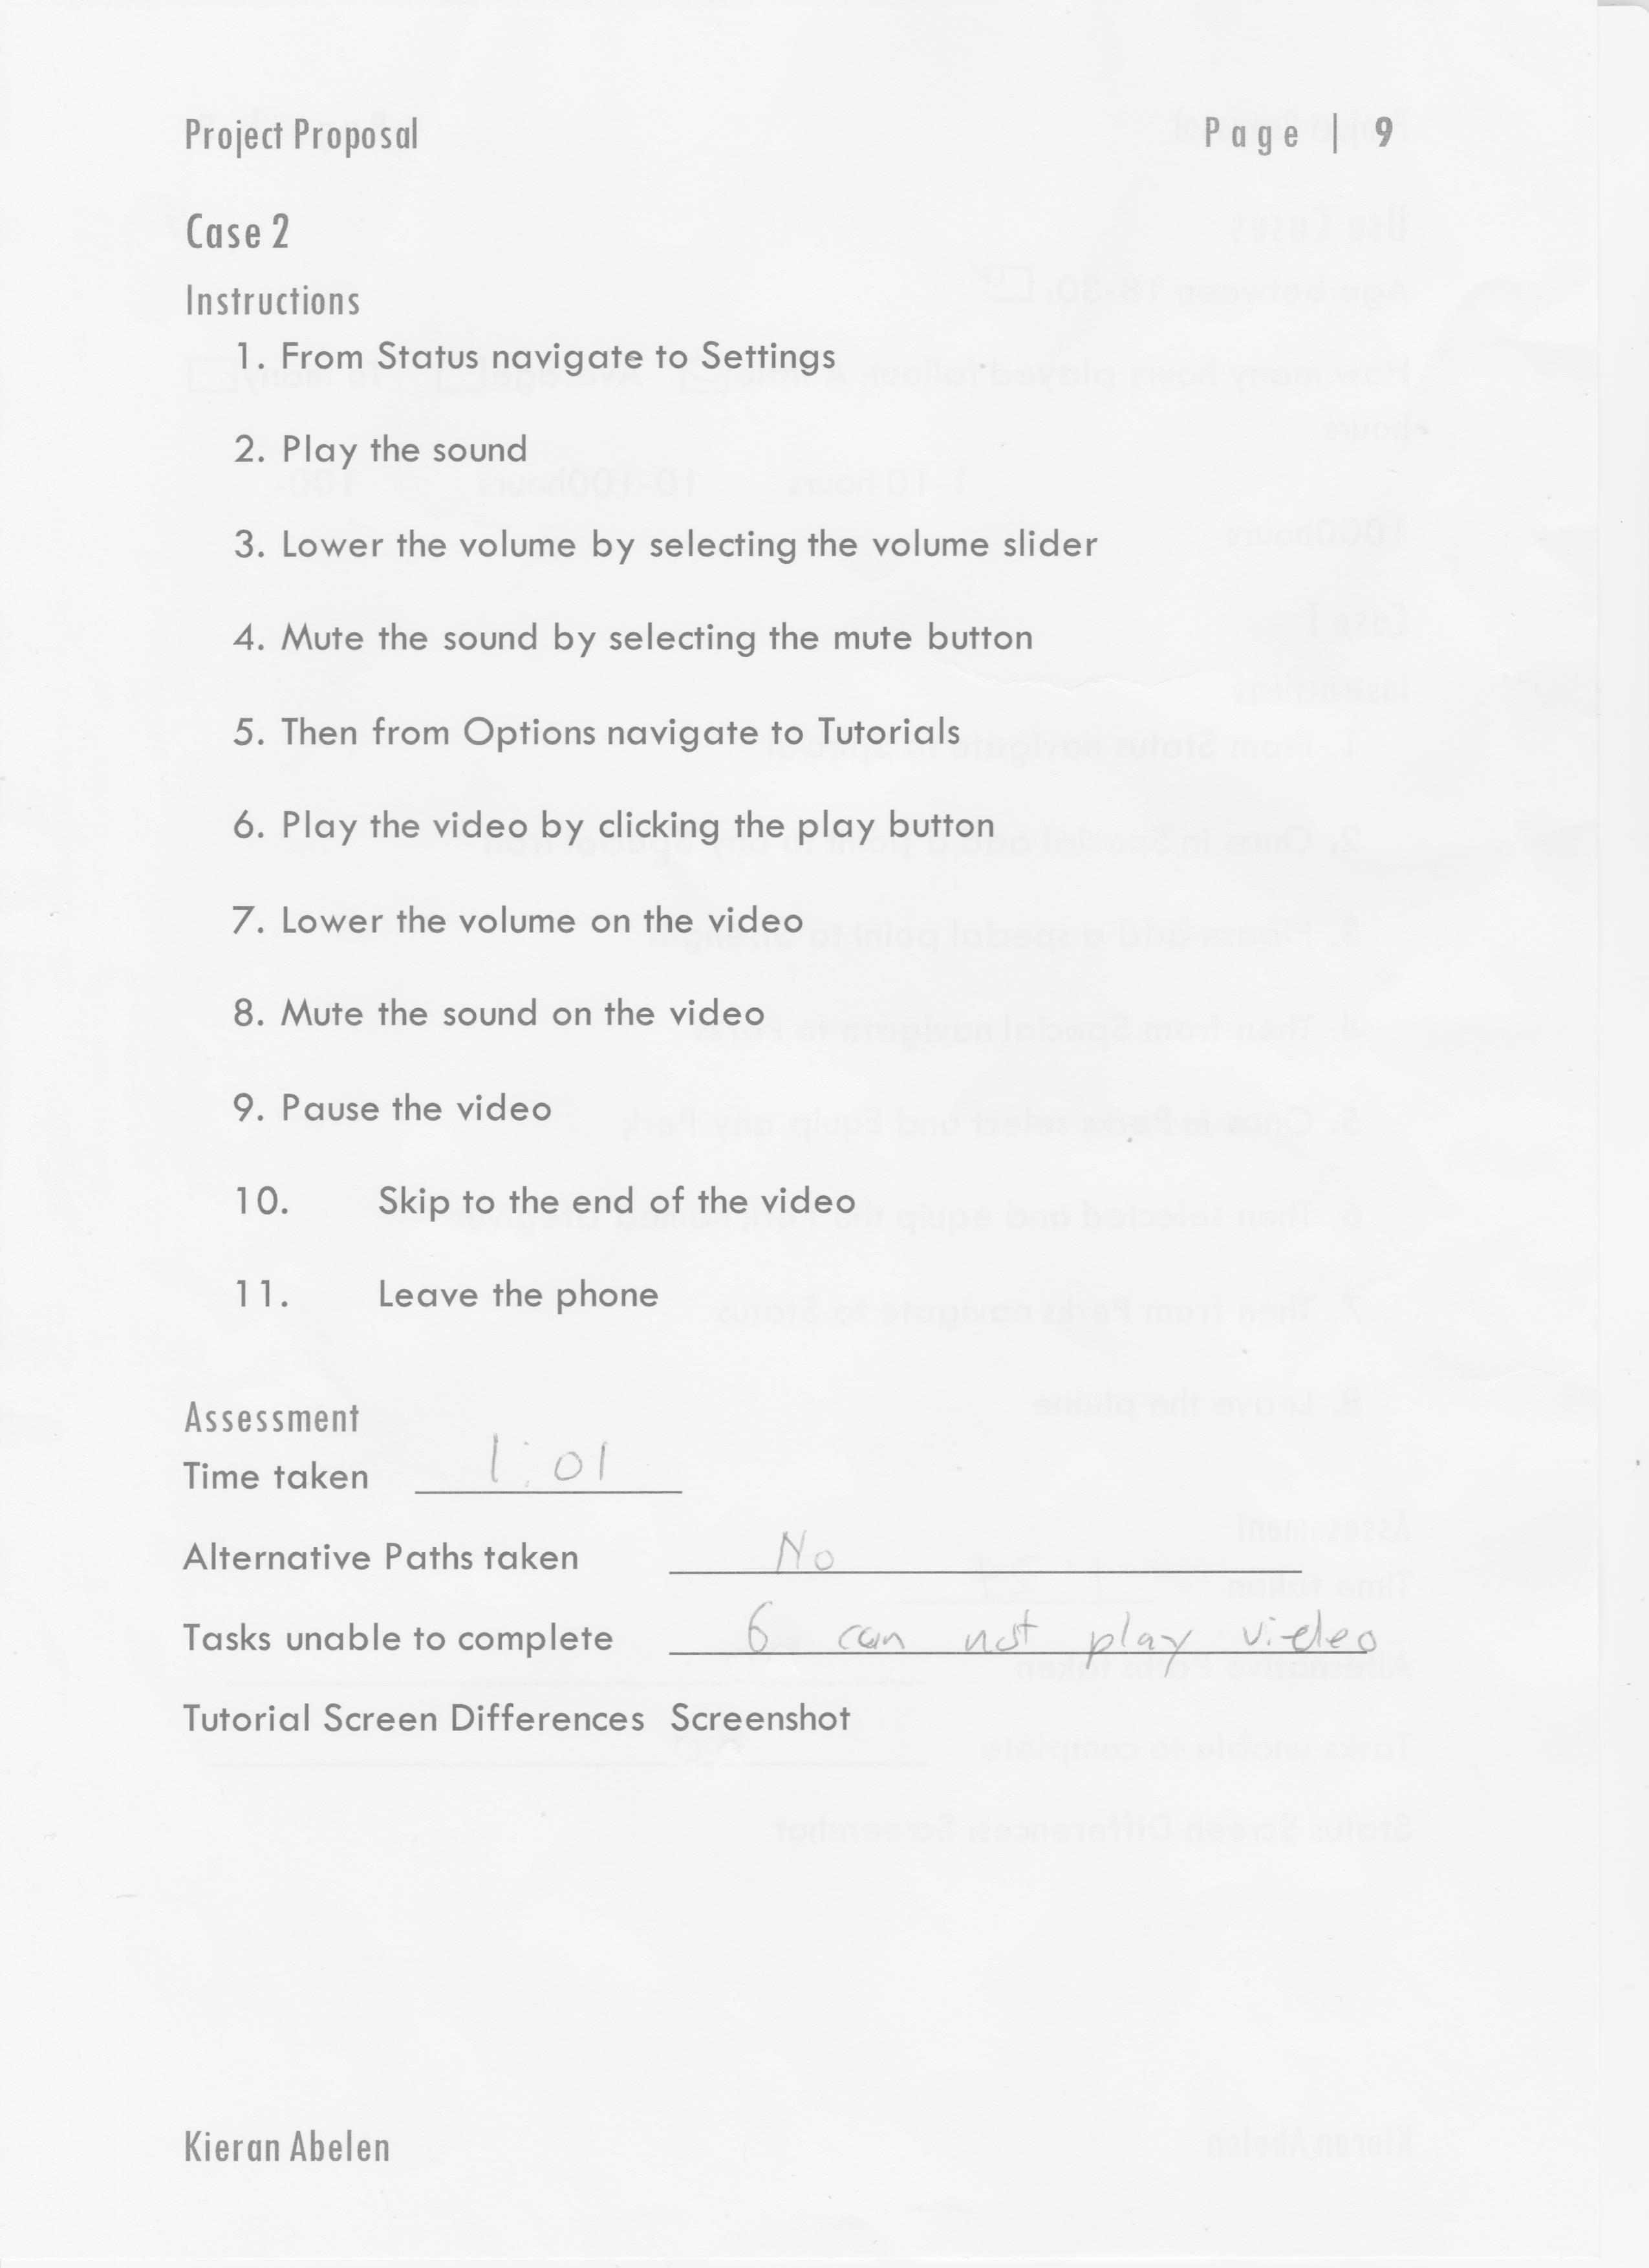 Project Proposal Page | 9
Case 2
Instructions
1. From Status navigate to Settings
2. Play the sound
3. Lower the volume by selecting the volume slider
4. Mute the sound by selecting the mute button
5. Then from Options navigate to Tutorials
6. Play the video by clicking the play button
7. Lower the volume on the video
8. Mute the sound on the video
9. Pause the video
10. Skip to the end of the video
11. Leave the phone
Assessment
Time taken 1:01
Alternative Paths taken No
Tasks unable to complete 6 can not play video
Tutorial Screen Differences Screenshot
Kieran Abelen